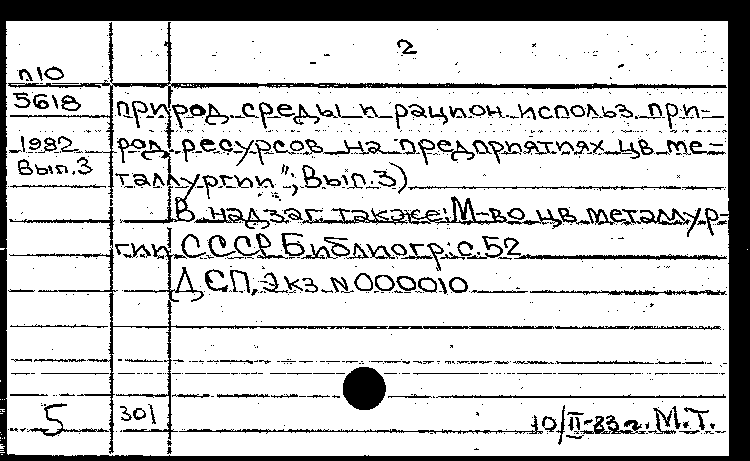 2
п10
5618 природ. среды и рацион. использ. при-
1982 род. ресурсов на предприятиях цв. ме-
Вып.3 таллургии"; Вып.3)
В надзаг. также: М-во цв. металлур-
гии СССР. Библиогр.: с.52
ДСП, Экз. N 000010
5 301 10/II-83 г. М.Т.